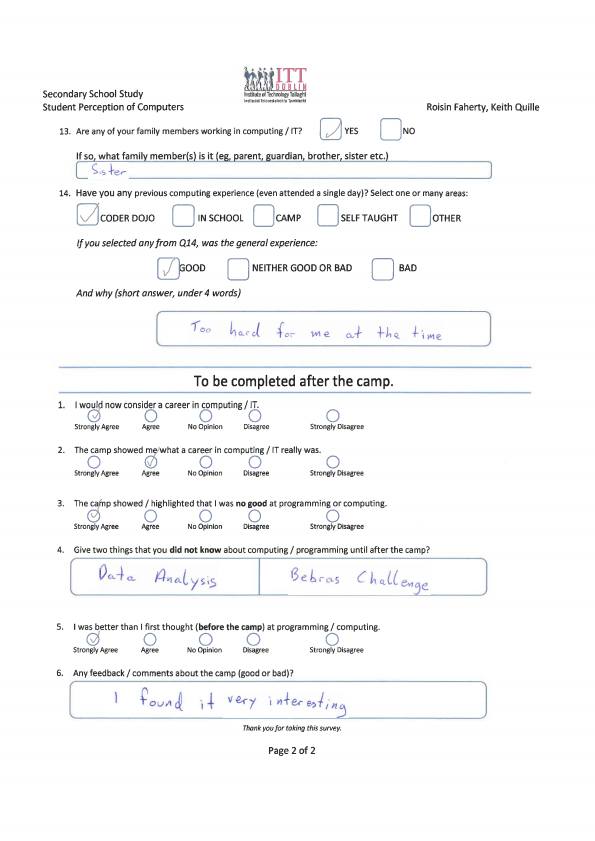 ITT
DUBLIN
Institute of Technology Tallaght
Secondary School Study
Student Perception of Computers
Roisin Faherty, Keith Quille
13. Are any of your family members working in computing / IT? YES NO
If so, what family member(s) is it (eg, parent, guardian, brother, sister etc.)
Sister
14. Have you any previous computing experience (even attended a single day)? Select one or many areas:
CODER DOJO IN SCHOOL CAMP SELF TAUGHT OTHER
If you selected any from Q14, was the general experience:
GOOD NEITHER GOOD OR BAD BAD
And why (short answer, under 4 words)
Too hard for me at the time
To be completed after the camp.
1. I would now consider a career in computing / IT.
Strongly Agree Agree No Opinion Disagree Strongly Disagree
2. The camp showed me what a career in computing / IT really was.
Strongly Agree Agree No Opinion Disagree Strongly Disagree
3. The camp showed / highlighted that I was no good at programming or computing.
Strongly Agree Agree No Opinion Disagree Strongly Disagree
4. Give two things that you did not know about computing / programming until after the camp?
Data Analysis Bebras Challenge
5. I was better than I first thought (before the camp) at programming / computing.
Strongly Agree Agree No Opinion Disagree Strongly Disagree
6. Any feedback / comments about the camp (good or bad)?
I found it very interesting
Thank you for taking this survey.
Page 2 of 2